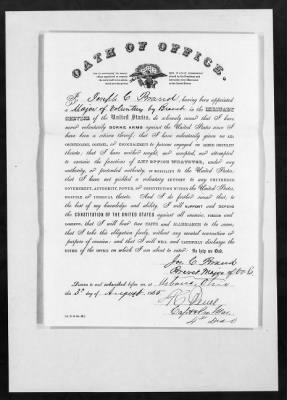 OATH OF OFFICE.
I, Joseph C Brand, having been appointed
a Major of Volunteers by Brevet in the MILITARY
SERVICE of the United States, do solemnly swear that I have
never voluntarily BORNE ARMS against the United States since I
have been a citizen thereof; that I have voluntarily given NO AID,
COUNTENANCE, COUNSEL, or ENCOURAGEMENT to persons engaged in ARMED HOSTILITY
thereto; that I have neither sought, nor accepted, nor attempted
to exercise the functions of ANY OFFICE WHATEVER, under any
authority, or pretended authority, IN HOSTILITY to the United States;
that I have not yielded a voluntary SUPPORT to any PRETENDED
GOVERNMENT, AUTHORITY, POWER, or CONSTITUTION WITHIN the United States,
HOSTILE or INIMICAL thereto. And I do further swear that, to
the best of my knowledge and ability, I will SUPPORT and DEFEND
the CONSTITUTION OF THE UNITED STATES against all enemies, FOREIGN and
DOMESTIC; that I will bear TRUE FAITH and ALLEGIANCE to the same;
that I take this obligation freely, without any mental reservation or
purpose of evasion; and that I will WELL and FAITHFULLY discharge the
DUTIES OF THE OFFICE on which I am about to enter. So help me God.
Jos. C. Brand
Brevet Major
Sworn to and subscribed before me, at Urbana, Ohio
this 5th day of August 1865